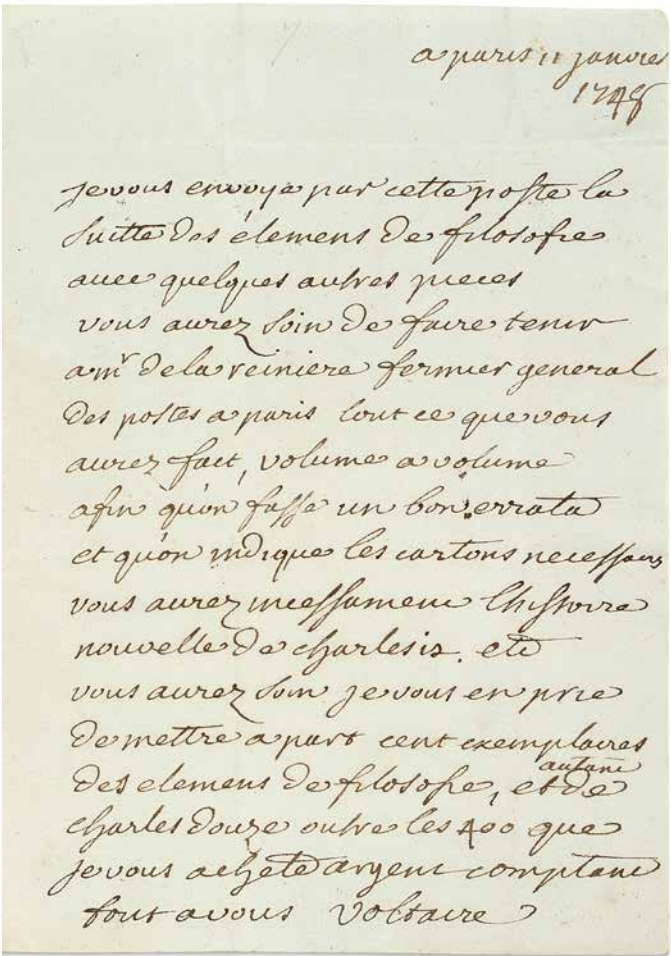 a paris 11 janvier
1748
je vous envoye par cette poste la
suitte des élemens de filosofie
avec quelques autres pieces
vous aurez soin de faire tenir
a mr de la reiniere fermier general
des postes a paris tout ce que vous
aurez fait, volume a volume
afin qu'on fasse un bon errata
et qu'on indique les cartons necessaires
vous aurez incessament l'histoire
nouvelle de charles 12. etc
vous aurez soin je vous en prie
de mettre a part cent exemplaires
des elemens de filosofie, et autant de
charles douze outre les 400 que
je vous achete argent comptant
tout a vous Voltaire